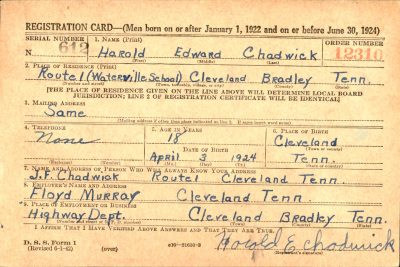 REGISTRATION CARD—(Men born on or after January 1, 1922 and on or before June 30, 1924)
SERIAL NUMBER 1. NAME (Print) ORDER NUMBER
N 612 Harold Edward Chadwick 12310
(First) (Middle) (Last)
2. PLACE OF RESIDENCE (Print)
Route 1 (Waterville School) Cleveland Bradley Tenn.
[THE PLACE OF RESIDENCE GIVEN ON THE LINE ABOVE WILL DETERMINE LOCAL BOARD
JURISDICTION; LINE 2 OF REGISTRATION CERTIFICATE WILL BE IDENTICAL]
3. MAILING ADDRESS
Same
[Mailing address if other than place indicated on line 2. If same insert word same]
4. TELEPHONE 5. AGE IN YEARS 6. PLACE OF BIRTH
None 18 Cleveland
DATE OF BIRTH (Town or county)
April 3 1924 Tenn.
(Exchange) (Number) (Mo.) (Day) (Yr.) (State or country)
7. NAME AND ADDRESS OF PERSON WHO WILL ALWAYS KNOW YOUR ADDRESS
J.F. Chadwick Route 1 Cleveland Tenn.
8. EMPLOYER'S NAME AND ADDRESS
Floyd Murray Cleveland Tenn.
9. PLACE OF EMPLOYMENT OR BUSINESS
Highway Dept. Cleveland Bradley Tenn.
(Number and street or R. F. D. number) (Town) (County) (State)
I AFFIRM THAT I HAVE VERIFIED ABOVE ANSWERS AND THAT THEY ARE TRUE.
D. S. S. Form 1
(Revised 6-1-42) (over) Harold E Chadwick